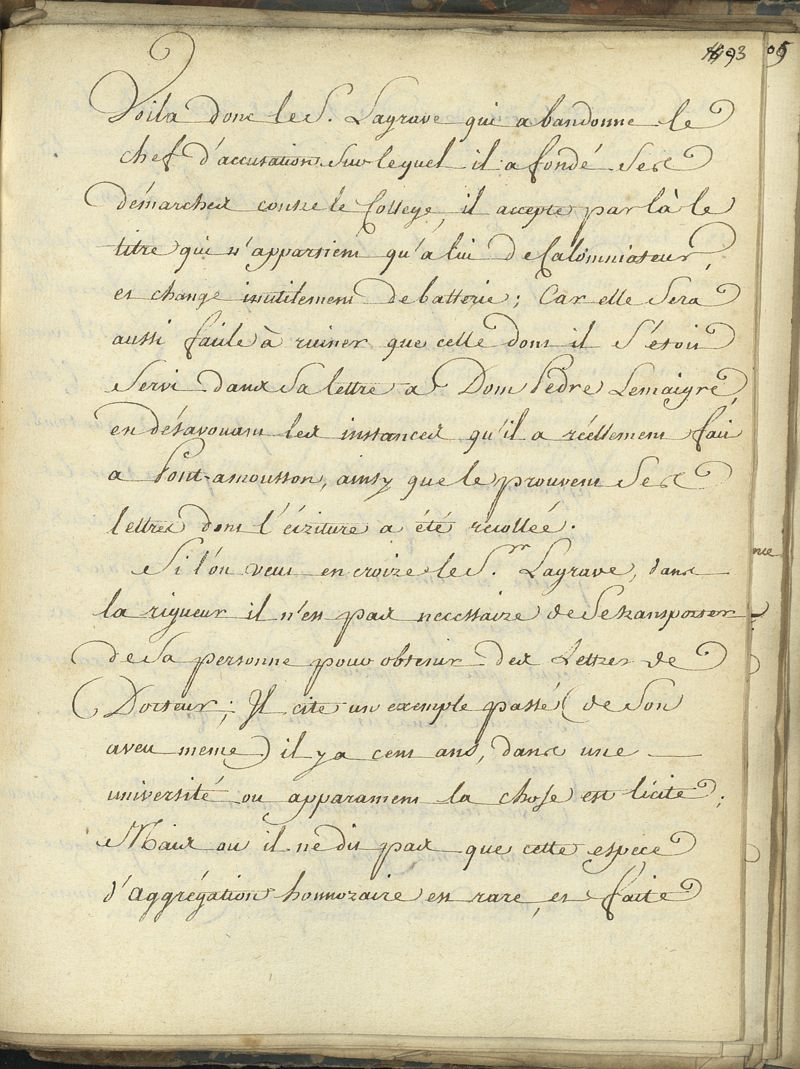 93
Voila donc le S. Lagrave qui abandonne le
chef d'accusation sur lequel il a fondé ses
démarches contre le College, il accepte par là le
titre qui n'appartient qu'a lui de Calomniateur,
et change inutilement de batterie; Car elle sera
aussi facile à ruiner que celle dont il s'étoit
servi dans sa lettre a Dom Pedre Lemaigre,
en désavouant les instances qu'il a réellement fait
a Pont-amousson, ainsy que le prouvent ses
lettres dont l'écriture a été recollée.
Si l'on veut en croire le S.r Lagrave, dans
la rigueur il n'est pas necessaire de se transporter
de sa personne pour obtenir des Lettres de
Docteur; Il cite un exemple passé (de son
aveu meme) il y a cent ans, dans une
université ou apparament la chose est licite;
Mais ou il ne dit pas que cette espece
d'aggrégation honnoraire est rare, et faite